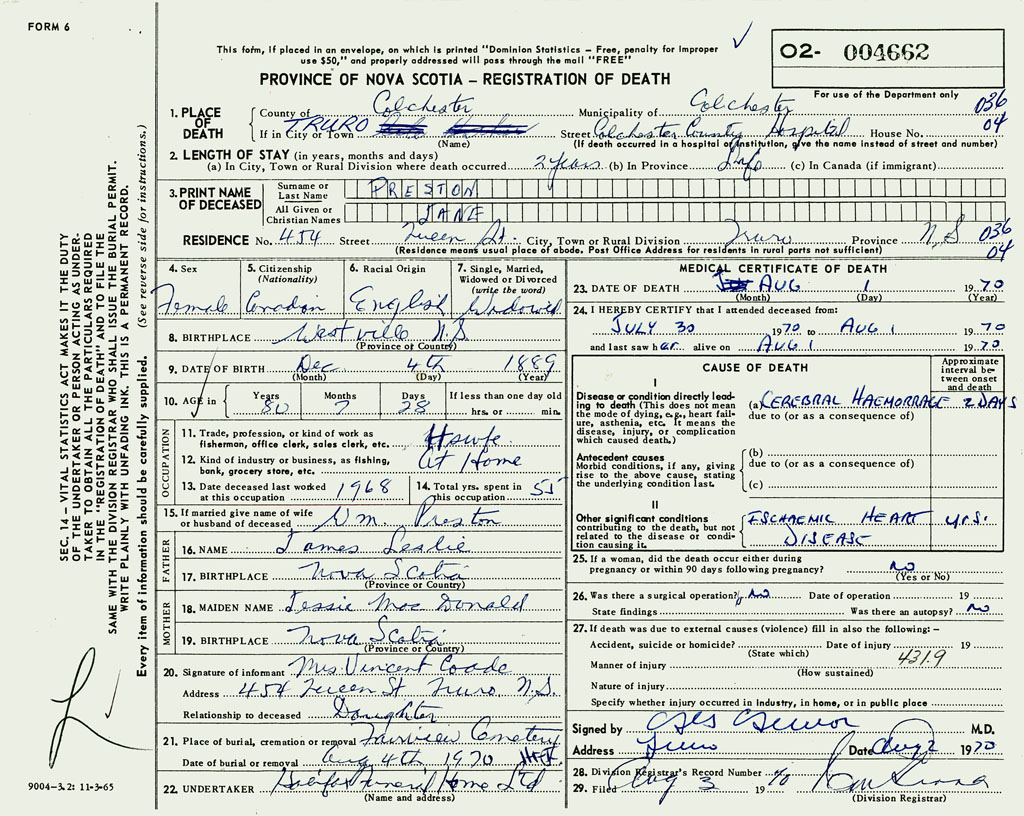 FORM 6
This form, if placed in an envelope, on which is printed "Dominion Statistics – Free, penalty for improper
use $50," and properly addressed will pass through the mail "FREE"
PROVINCE OF NOVA SCOTIA – REGISTRATION OF DEATH
O2- 004662
For use of the Department only
1. PLACE OF DEATH
County of Colchester Municipality of Colchester 036
If in City or Town TRURO Street Colchester County Hospital House No. 04
(Name) (If death occurred in a hospital or institution, give the name instead of street and number)
2. LENGTH OF STAY (in years, months and days)
(a) In City, Town or Rural Division where death occurred 2 years (b) In Province Life (c) In Canada (if immigrant)
3. PRINT NAME OF DECEASED
Surname or Last Name PRESTON
All Given or Christian Names JANE
RESIDENCE No. 454 Street Queen St. City, Town or Rural Division Truro Province N.S 036
(Residence means usual place of abode. Post Office Address for residents in rural parts not sufficient) 04
4. Sex Female
5. Citizenship (Nationality) Canadian
6. Racial Origin English
7. Single, Married, Widowed or Divorced (write the word) Widowed
8. BIRTHPLACE Westville N.S.
(Province or Country)
9. DATE OF BIRTH Dec 4th 1889
(Month) (Day) (Year)
10. AGE in Years 80 Months 7 Days 28 If less than one day old hrs. or min.
OCCUPATION
11. Trade, profession, or kind of work as fisherman, office clerk, sales clerk, etc. Hswfe.
12. Kind of industry or business, as fishing, bank, grocery store, etc. At Home
13. Date deceased last worked at this occupation 1968
14. Total yrs. spent in this occupation 55
15. If married give name of wife or husband of deceased Wm. Preston
FATHER
16. NAME James Leslie
17. BIRTHPLACE Nova Scotia
(Province or Country)
MOTHER
18. MAIDEN NAME Jessie Mac Donald
19. BIRTHPLACE Nova Scotia
(Province or Country)
20. Signature of informant Mrs Vincent Coade
Address 454 Queen St Truro N.S.
Relationship to deceased Daughter
21. Place of burial, cremation or removal Fairview Cemetery
Date of burial or removal Aug 4th 1970
22. UNDERTAKER Halifax Funeral Home Ltd
(Name and address)
MEDICAL CERTIFICATE OF DEATH
23. DATE OF DEATH AUG 1 1970
(Month) (Day) (Year)
24. I HEREBY CERTIFY that I attended deceased from:
JULY 30 1970 to AUG 1 1970
and last saw her alive on AUG 1 1970
CAUSE OF DEATH
Approximate interval between onset and death
I
Disease or condition directly leading to death (This does not mean the mode of dying, e.g., heart failure, asthenia, etc. It means the disease, injury, or complication which caused death.)
(a) CEREBRAL HAEMORRAGE 2 DAYS
due to (or as a consequence of)
Antecedent causes
Morbid conditions, if any, giving rise to the above cause, stating the underlying condition last.
(b)
due to (or as a consequence of)
(c)
II
Other significant conditions contributing to the death, but not related to the disease or condition causing it.
ISCHAEMIC HEART DISEASE yrs.
25. If a woman, did the death occur either during pregnancy or within 90 days following pregnancy? no
(Yes or No)
26. Was there a surgical operation? no Date of operation 19
State findings Was there an autopsy? no
27. If death was due to external causes (violence) fill in also the following: –
Accident, suicide or homicide? Date of injury 19
(State which) 431.9
Manner of injury
(How sustained)
Nature of injury
Specify whether injury occurred in Industry, in home, or in public place
Signed by M.D.
Address Truro Date Aug 2 1970
28. Division Registrar's Record Number
29. Filed Aug 3 1970
(Division Registrar)
SEC. 14 – VITAL STATISTICS ACT MAKES IT THE DUTY
OF THE UNDERTAKER OR PERSON ACTING AS UNDER-
TAKER TO OBTAIN ALL THE PARTICULARS REQUIRED
IN THE "REGISTRATION OF DEATH" AND TO FILE THE
SAME WITH THE DIVISION REGISTRAR WHO SHALL ISSUE THE BURIAL PERMIT.
WRITE PLAINLY WITH UNFADING INK. THIS IS A PERMANENT RECORD.
Every item of information should be carefully supplied. (See reverse side for instructions.)
9004-3.2: 11-3-65